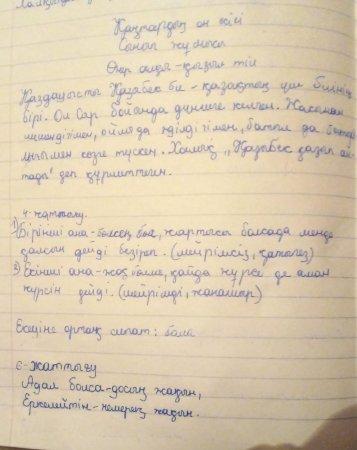 Қаңтардың он екісі
Сынып жұмысы
Өнер алды-қызыл тіл
Қаздауысты Қазыбек би - қазақтың үш биінің
бірі. Ол Сыр бойында дүниеге келген. Жасынан
шешендігімен, ойлы да әділдігімен, батыл да батыр
лығымен көзге түскен. Халық „Қазыбек
тады" деп құрметтеген.
4-жаттығу.
1) Бірінші ана-бөлсең бөл, жартысы болсада менде
қалсын дейді безіреп. (мейрімсіз, қатыгез)
2) Екінші ана-жоқ бөлме, қайда жүрсе де аман
жүрсін дейді. (мейрімді, жанашыр)
Екеуіне ортақ сипат: бала
6-жаттығу
Адал болса-досың жақын,
Еркелейтін-немерең жақын.